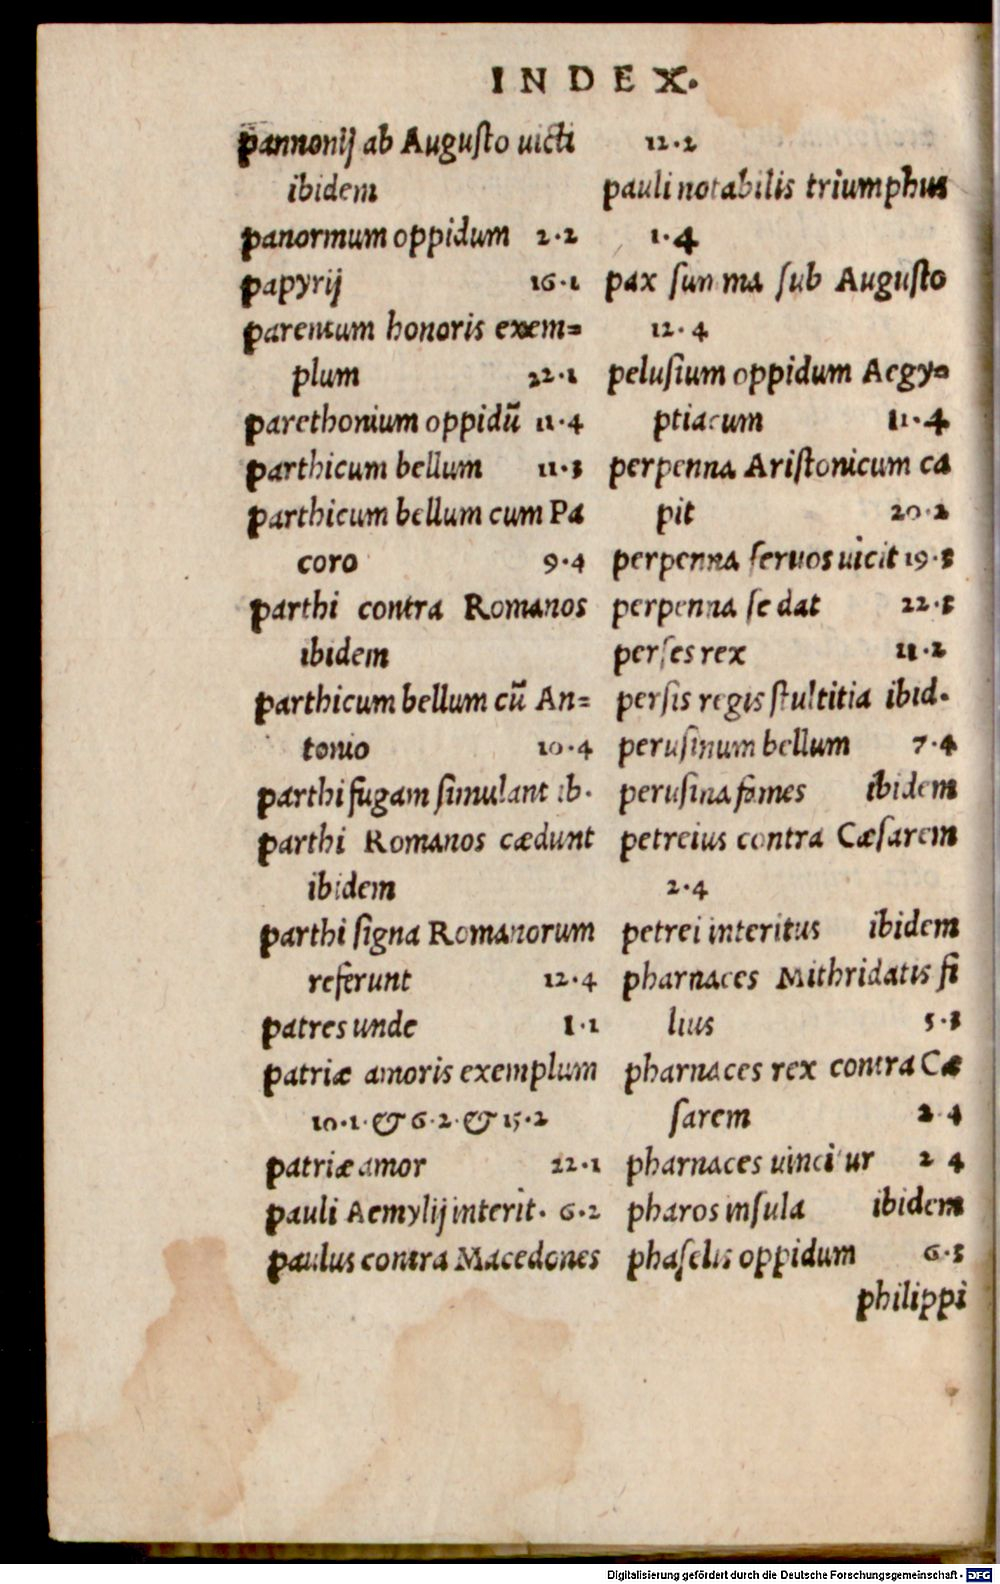 INDEX.
pannonij ab Augusto uicti
ibidem
panormum oppidum 2.2
papyrij 16.1
parentum honoris exem=
plum 22.1
parethonium oppidũ 11.4
parthicum bellum 11.3
parthicum bellum cum Pa
coro 9.4
parthi contra Romanos
ibidem
parthicum bellum cũ An=
tonio 10.4
parthi fugam simulant ib.
parthi Romanos cædunt
ibidem
parthi signa Romanorum
referunt 12.4
patres unde 1.1
patriæ amoris exemplum
10.1.& 6.2.& 15.2
patriæ amor 22.1
pauli Aemylij interit. 6.2
paulus contra Macedones
12.2
pauli notabilis triumphus
1.4
pax summa sub Augusto
12.4
pelusium oppidum Aegy=
ptiacum 11.4
perpenna Aristonicum ca
pit 20.2
perpenna seruos uicit 19.3
perpenna se dat 22.3
perses rex 11.2
persis regis stultitia ibid.
perusinum bellum 7.4
perusina fames ibidem
petreius contra Cæsarem
2.4
petrei interitus ibidem
pharnaces Mithridatis fi
lius 5.3
pharnaces rex contra Cæ
sarem 2 4
pharnaces uincitur 2 4
pharos insula ibidem
phaselis oppidum 6.3
philippi
Digitalisierung gefördert durch die Deutsche Forschungsgemeinschaft - DFG